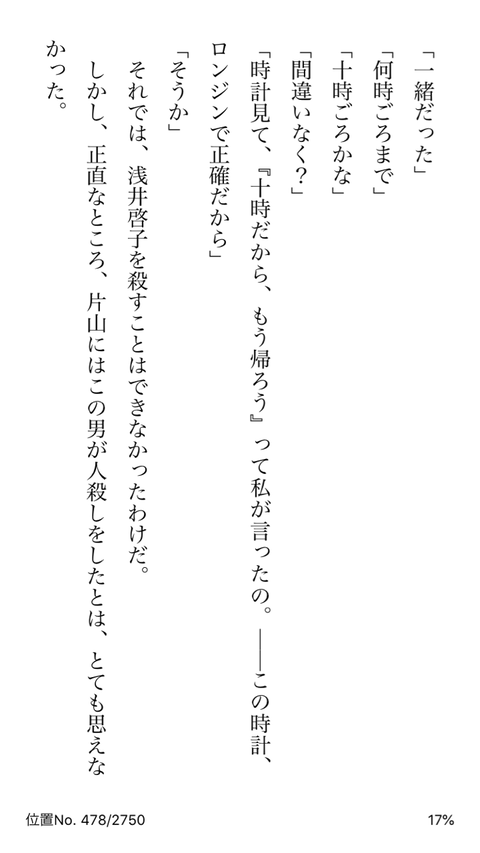 「一緒だった」
「何時ごろまで」
「十時ごろかな」
「間違いなく？」
「時計見て、『十時だから、もう帰ろう』って私が言ったの。――この時計、
ロンジンで正確だから」
「そうか」
それでは、浅井啓子を殺すことはできなかったわけだ。
しかし、正直なところ、片山にはこの男が人殺しをしたとは、とても思えな
かった。
位置No. 478/2750
17%